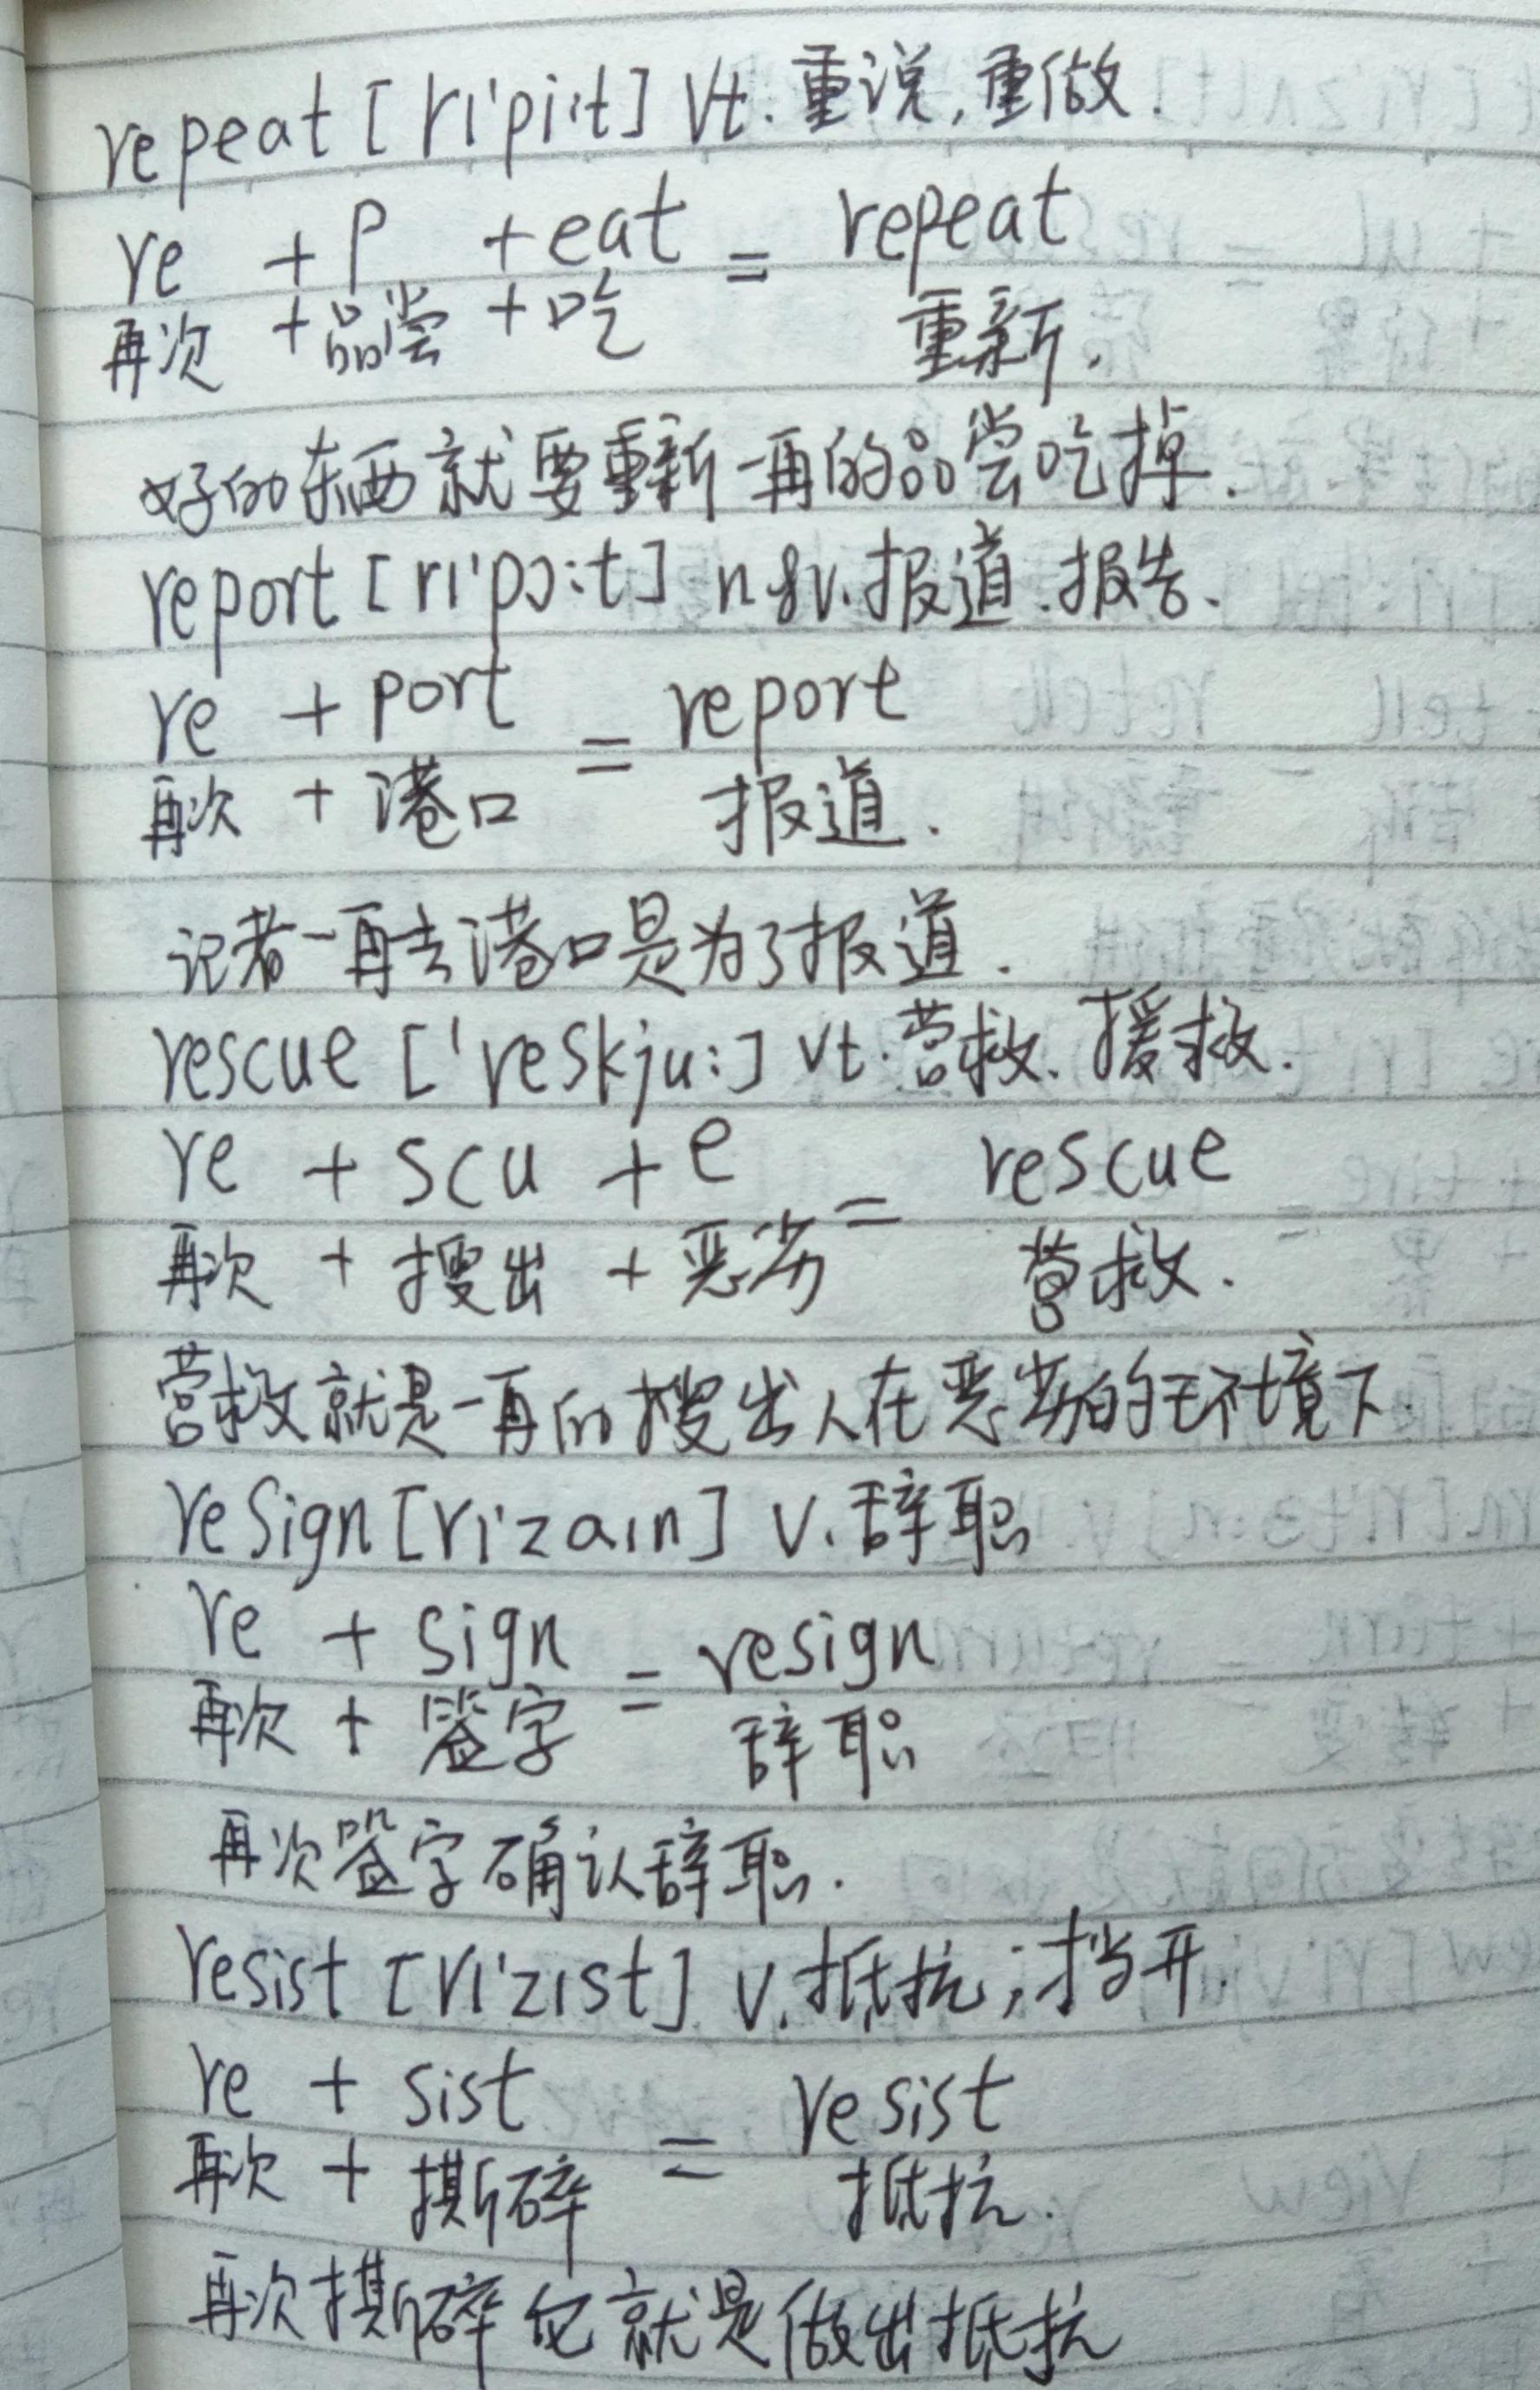 repeat [ri'pi:t] vt. 重说,重做.
re + p + eat = repeat
再次 + 品尝 + 吃 重新.
好的东西就要重新一再的品尝吃掉.
report [ri'pɔ:t] n&v. 报道.报告.
re + port = report
再次 + 港口 报道.
记者一再去港口是为了报道.
rescue ['reskju:] vt. 营救. 援救.
re + scu + e = rescue
再次 + 搜出 + 恶劣 营救.
营救就是一再的搜出人在恶劣的环境下.
resign [ri'zaın] v. 辞职
re + sign = resign
再次 + 签字 辞职
再次签字确认辞职.
resist [rı'zıst] v. 抵抗;挡开.
re + sist = resist
再次 + 撕碎 抵抗.
再次撕碎它就是做出抵抗